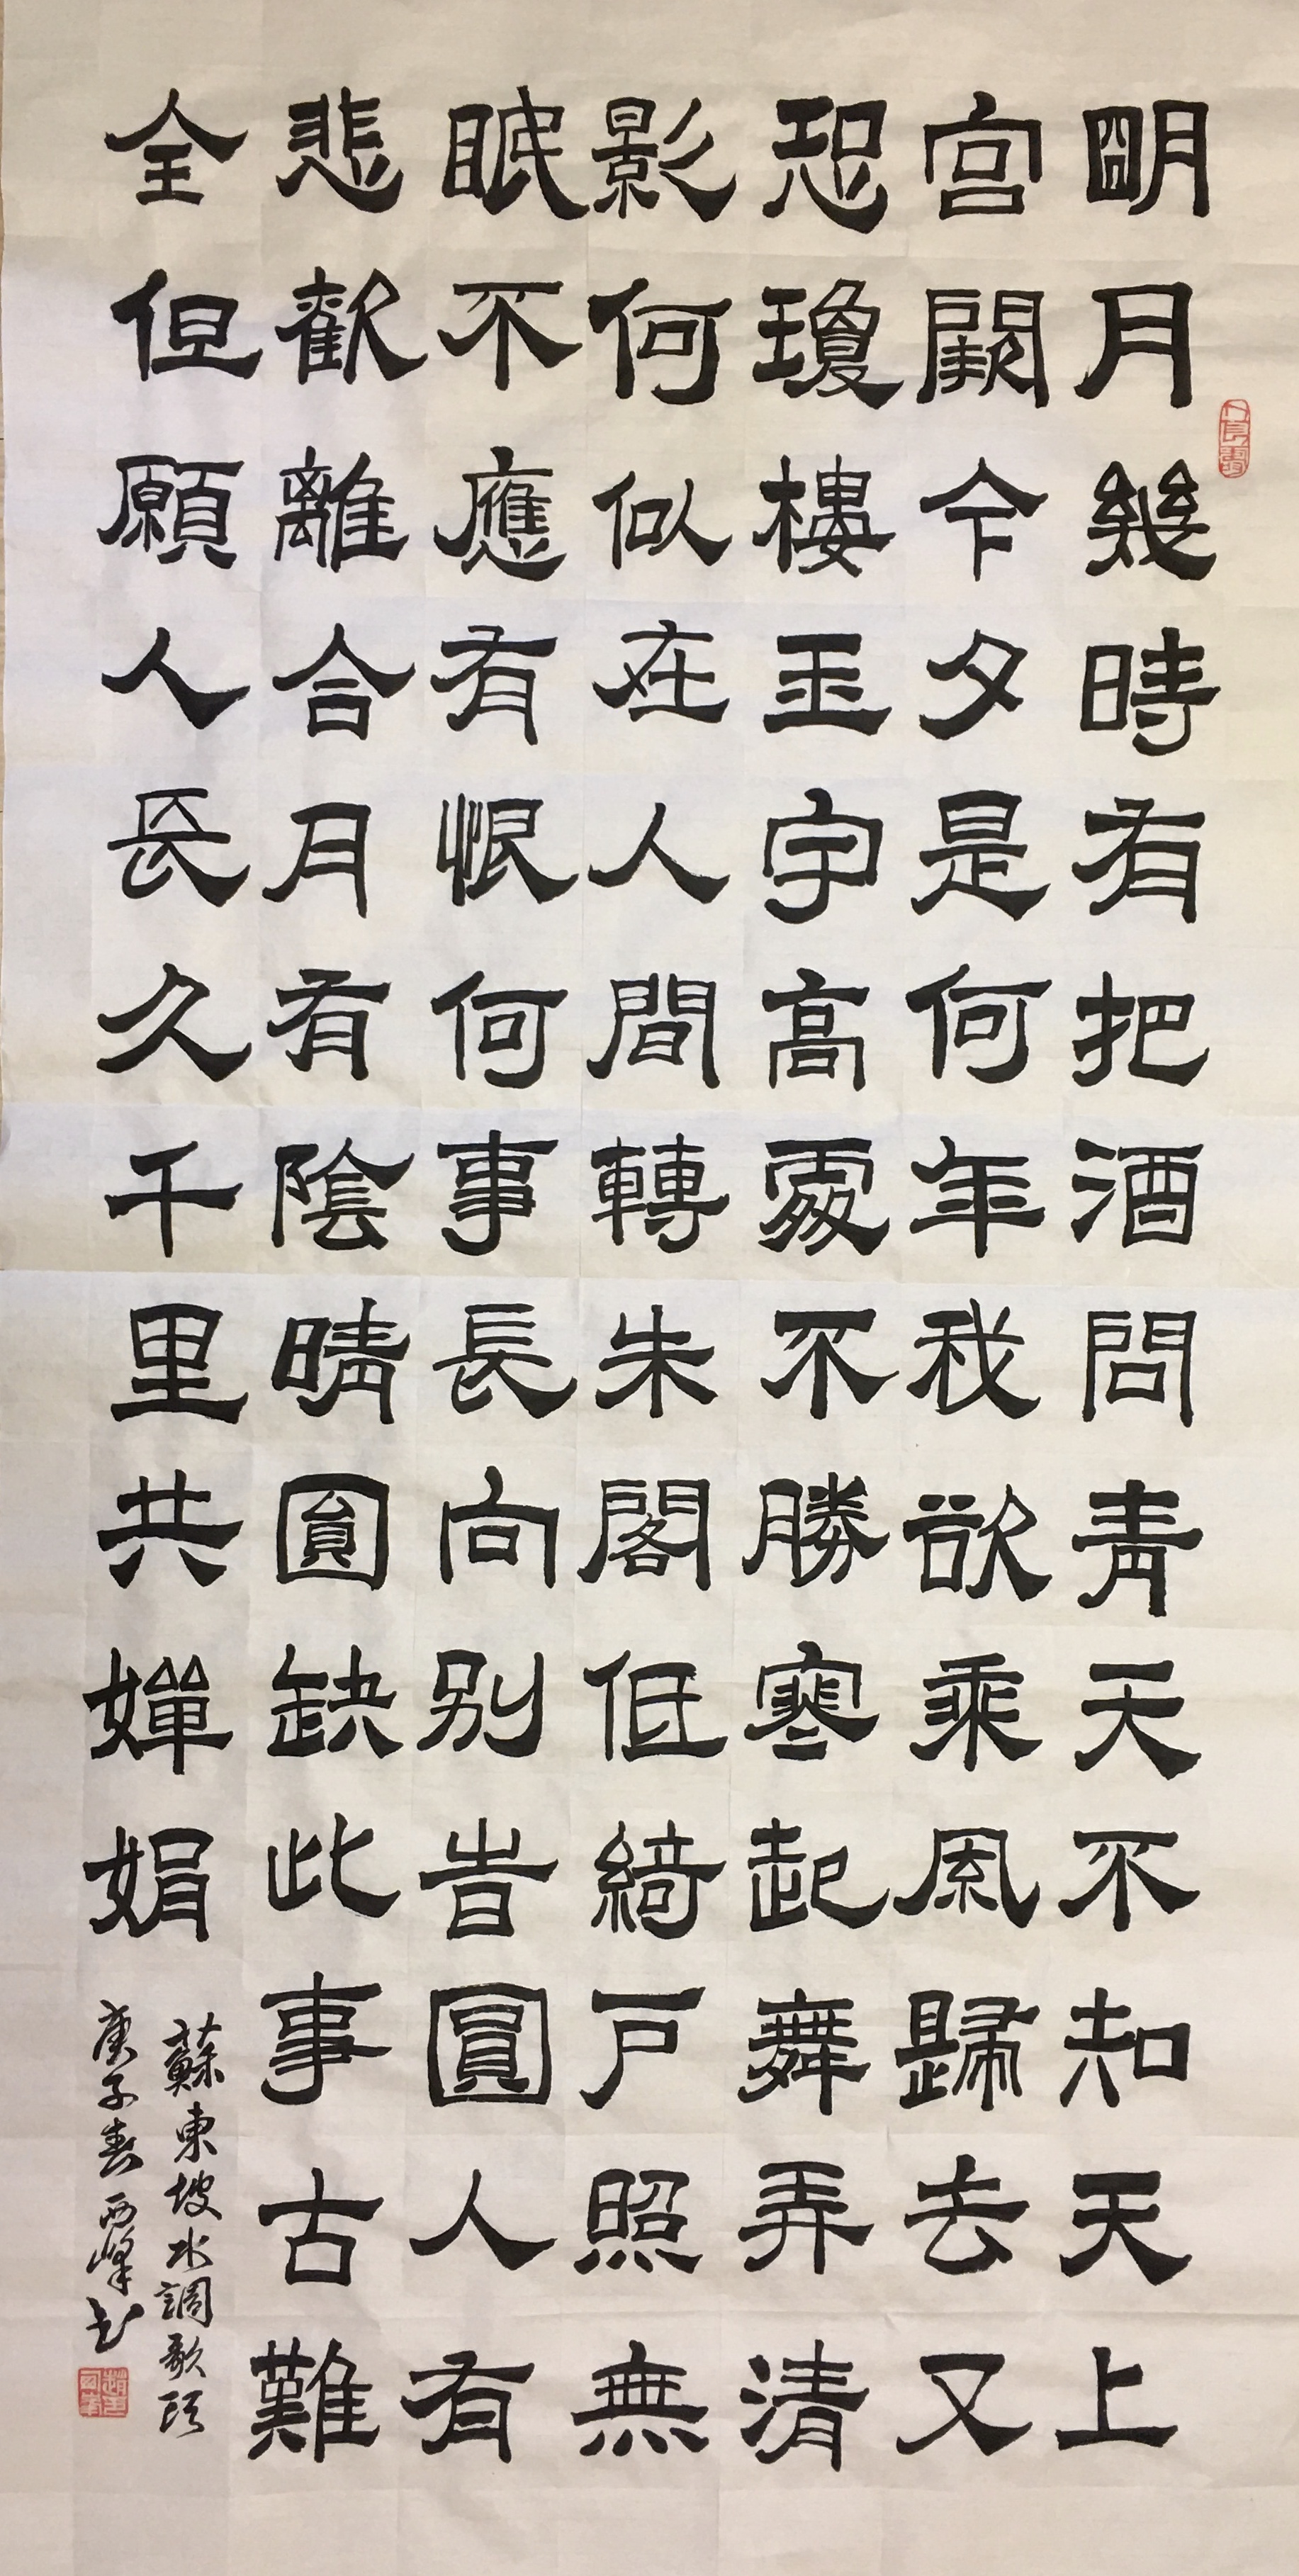 明月幾時有把酒問青天不知天上
宫闕今夕是何年我欲乘風歸去又
恐瓊樓玉宇高處不勝寒起舞弄清
影何似在人間轉朱閣低綺戶照無
眠不應有恨何事長向別旹圓人有
悲歡離合月有陰晴圓缺此事古難
全但願人長久千里共嬋娟
蘇東坡水調歌頭
庚子春西峰書